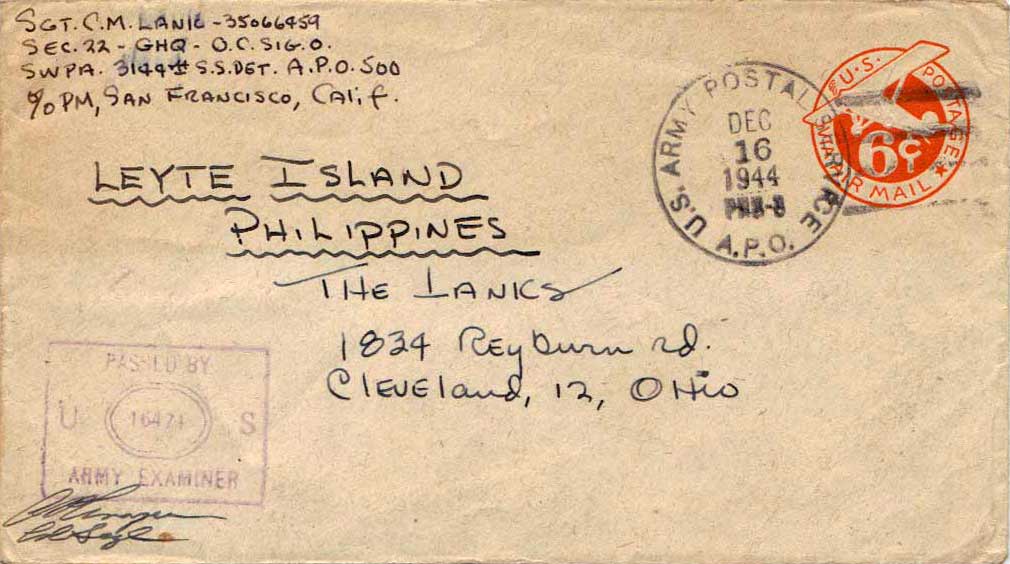 SGT. C.M. LANK - 35066459
SEC. 22 - GHQ - O.C. SIG. O.
SWPA. 3144th S.S. DET. A.P.O. 500
c/o PM, SAN FRANCISCO, CALIF.
U.S. POSTAGE
VIA AIR MAIL
6¢
U.S. ARMY POSTAL SERVICE
DEC
16
1944
A.P.O.
LEYTE ISLAND
PHILIPPINES
THE LANKS
1834 Reyburn rd.
Cleveland, 12, Ohio
PASSED BY
U 16471 S
ARMY EXAMINER